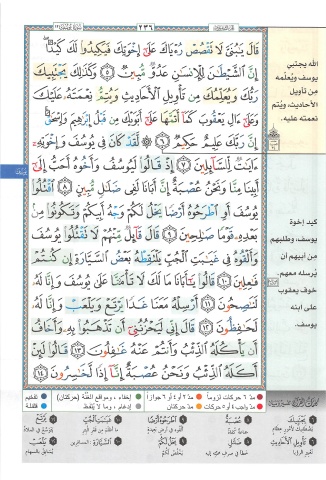 ٢٣٦
قَالَ يَٰبُنَىَّ لَا تَقْصُصْ رُءْيَاكَ عَلَىٰٓ إِخْوَتِكَ فَيَكِيدُوا۟ لَكَ كَيْدًا ۖ
إِنَّ ٱلشَّيْطَٰنَ لِلْإِنسَٰنِ عَدُوٌّ مُّبِينٌ ٥ وَكَذَٰلِكَ يَجْتَبِيكَ
رَبُّكَ وَيُعَلِّمُكَ مِن تَأْوِيلِ ٱلْأَحَادِيثِ وَيُتِمُّ نِعْمَتَهُۥ عَلَيْكَ
وَعَلَىٰٓ ءَالِ يَعْقُوبَ كَمَآ أَتَمَّهَا عَلَىٰٓ أَبَوَيْكَ مِن قَبْلُ إِبْرَٰهِيمَ وَإِسْحَٰقَ ۚ
إِنَّ رَبَّكَ عَلِيمٌ حَكِيمٌ ٦ لَّقَدْ كَانَ فِى يُوسُفَ وَإِخْوَتِهِۦٓ
ءَايَٰتٌ لِّلسَّآئِلِينَ ٧ إِذْ قَالُوا۟ لَيُوسُفُ وَأَخُوهُ أَحَبُّ إِلَىٰٓ
أَبِينَا مِنَّا وَنَحْنُ عُصْبَةٌ إِنَّ أَبَانَا لَفِى ضَلَٰلٍ مُّبِينٍ ٨ ٱقْتُلُوا۟
يُوسُفَ أَوِ ٱطْرَحُوهُ أَرْضًا يَخْلُ لَكُمْ وَجْهُ أَبِيكُمْ وَتَكُونُوا۟ مِنۢ
بَعْدِهِۦ قَوْمًا صَٰلِحِينَ ٩ قَالَ قَآئِلٌ مِّنْهُمْ لَا تَقْتُلُوا۟ يُوسُفَ
وَأَلْقُوهُ فِى غَيَٰبَتِ ٱلْجُبِّ يَلْتَقِطْهُ بَعْضُ ٱلسَّيَّارَةِ إِن كُنتُمْ
فَٰعِلِينَ ١٠ قَالُوا۟ يَٰٓأَبَانَا مَا لَكَ لَا تَأْمَ۫نَّا عَلَىٰ يُوسُفَ وَإِنَّا لَهُۥ
لَنَٰصِحُونَ ١١ أَرْسِلْهُ مَعَنَا غَدًا يَرْتَعْ وَيَلْعَبْ وَإِنَّا لَهُۥ
لَحَٰفِظُونَ ١٢ قَالَ إِنِّى لَيَحْزُنُنِىٓ أَن تَذْهَبُوا۟ بِهِۦ وَأَخَافُ
أَن يَأْكُلَهُ ٱلذِّئْبُ وَأَنتُمْ عَنْهُ غَٰفِلُونَ ١٣ قَالُوا۟ لَئِنْ
أَكَلَهُ ٱلذِّئْبُ وَنَحْنُ عُصْبَةٌ إِنَّآ إِذًا لَّخَٰسِرُونَ ١٤
الله يجتبي
يوسف ويُعلّمه
من تأويل
الأحاديث، ويُتم
نعمته عليه.
كيد إخوة
يوسف، وطلبهم
من أبيهم أن
يُرسله معهم،
خوف يعقوب
على ابنه
يوسف.
مد ٦ حركات لزوماً
مد ٢ أو ٤ أو ٦ جوازاً
إخفاء، ومواقع الغُنَّة (حركتان)
تفخيم
مد حركتان
إدغام، وما لا يُلفظ
قلقلة